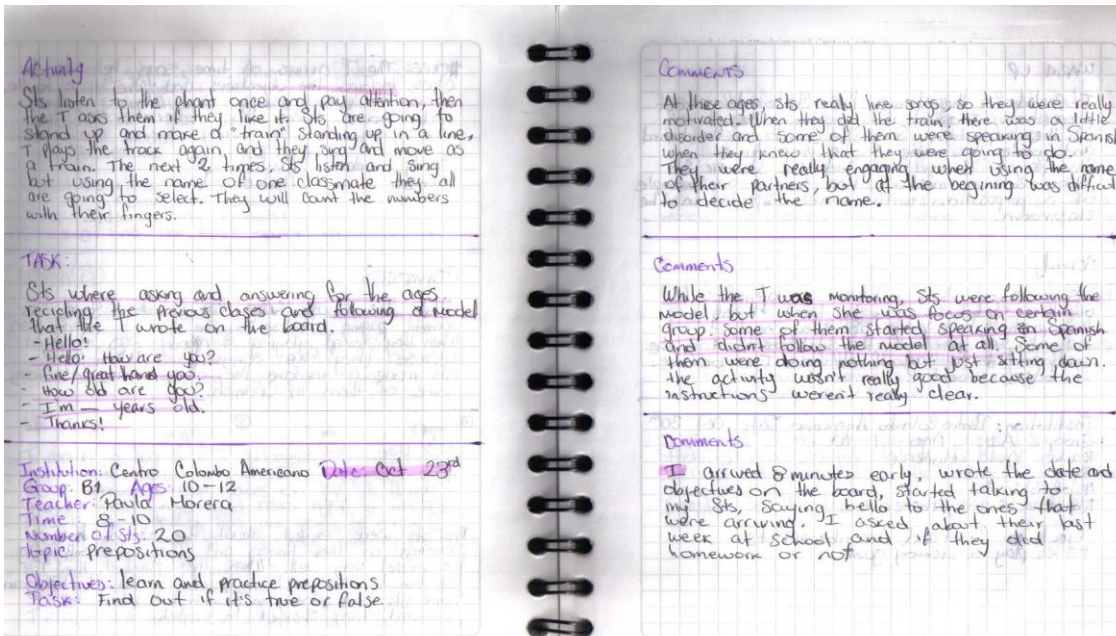 Activity
Sts listen to the chant once and pay attention, then
the T asks them if they like it. Sts are going to
stand up and make a "train" standing up in a line,
T plays the track again, and they sing and move as
a train. The next 2 times, Sts listen and sing
but using the name of one classmate they all
are going to select. They will count the numbers
with their fingers.
TASK:
Sts where asking and answering for the ages
recicling the previous clases and following a model
that the T wrote on the board.
- Hello!
- Hello! How are you?
- fine/great hand you.
- How old are you?
- I'm — years old.
- Thanks!
Institution: Centro Colombo Americano Date: Oct 23rd
Group: B1 Ages: 10-12
Teacher: Paula Morera
Time 8-10
Number of Sts: 20
Topic prepositions
Objectives: learn and practice prepositions
Task: Find out if it's true or false
Comments
At these ages, sts really like songs, so they were really
motivated. When they did the train, there was a little
disorder and some of them were speaking in Spanish
when they knew that they were going to do.
They were really engaging when using the name
of their partners, but at the begining was difficul
to decide the name.
Comments
While the T was monitoring, Sts were following the
model, but when she was focus on certain
group. some of them started speaking in Spanish
and didn't follow the model at all. Some of
them were doing nothing but just sitting down.
the activity wasn't really good because the
instructions weren't really clear.
Comments
I arrived 8 minutes early, wrote the date and
objectives on the board, started talking to
my Sts, saying hello to the ones that
were arriving. I asked about their last
week at school and if they did
homework or not